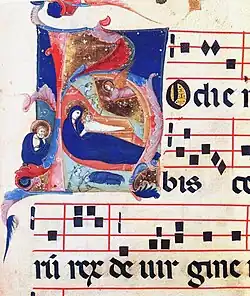 Hodie n
bis ce
rū rex de uir gine n